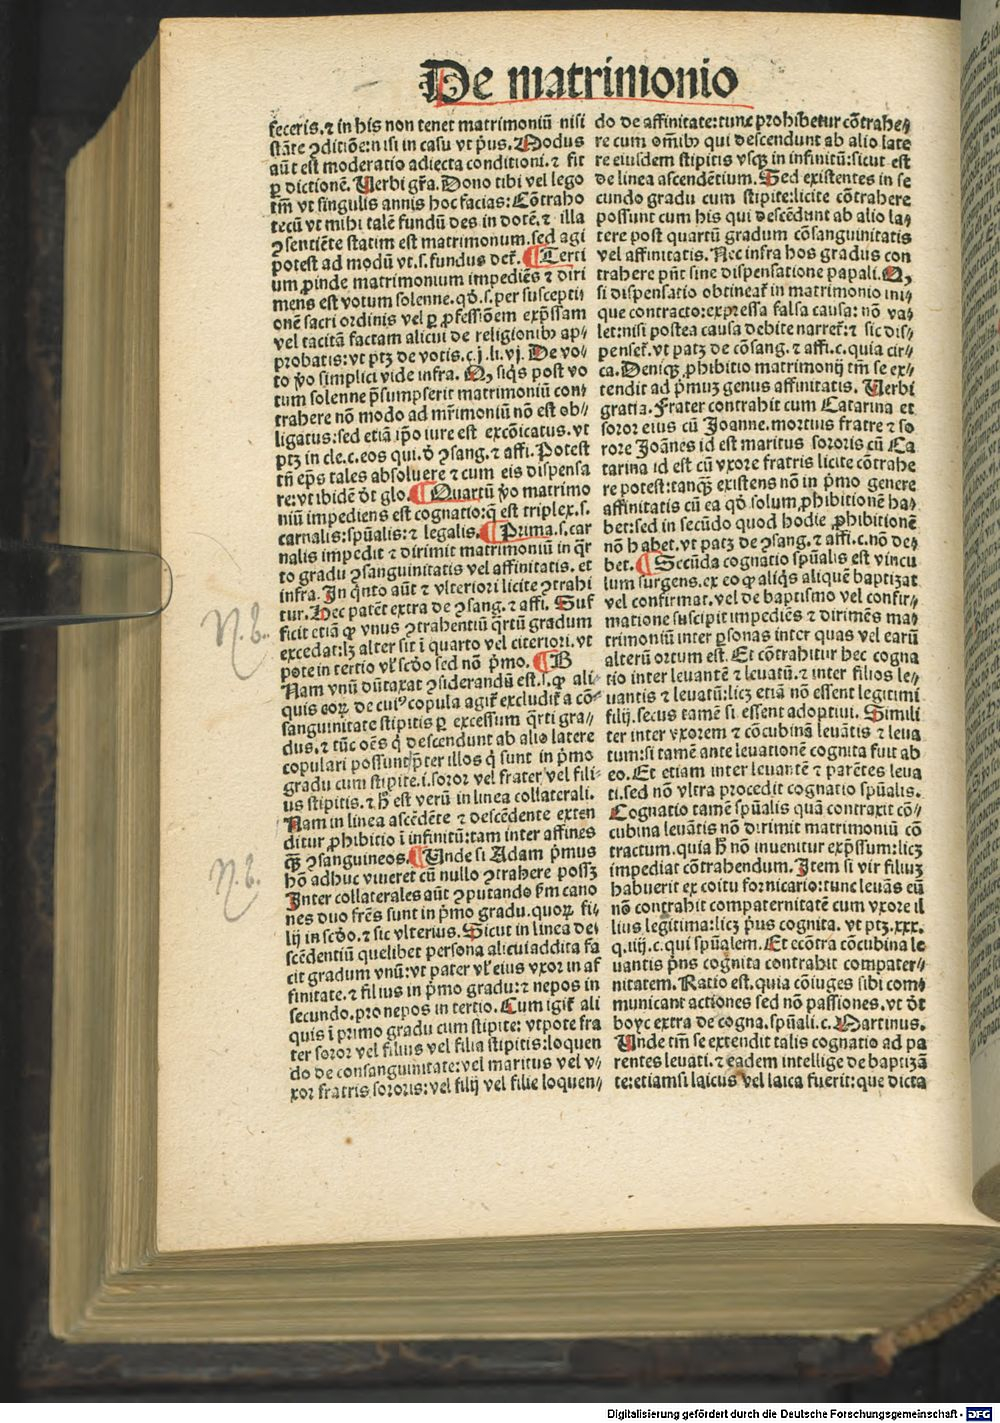 De matrimonio
feceris. ⁊ in his non tenet matrimoniū nisi
stāte ꝯditiōe: nisi in casu vt p̄us. Modus
aūt est moderatio adiecta conditioni. ⁊ fit
ꝑ dictionē. Uerbi gr̄a. Dono tibi vel lego
tm̄ vt singulis annis hoc facias: Cōtraho
tecū vt mihi talē fundū des in dotē. ⁊ illa
ꝯsentiēte statim est matrimonum. sed agi
potest ad modū vt .s. fundus det᷑. ¶ Terti
um ꝓinde matrimonium impediēs ⁊ diri
mens est votum solenne. qd̓ .s. per suscepti
onē sacri ordinis vel ꝑ ꝓfessiōem exp̄ssam
vel tacitā factam alicui de religionibꝰ ap-
probatis: vt ptꝫ de votis. c. j. li. vj. De vo-
to ꝟo simplici vide infra. Q, siq̄s post vo
tum solenne p̄sumpserit matrimoniū con-
trahere nō modo ad mr̄imoniū nō est ob-
ligatus: sed etiā ip̄o iure est excōicatus. vt
ptꝫ in cle. c. eos qui. d̓ ꝯsang. ⁊ affi. Potest
tn̄ ep̄s tales absoluere ⁊ cum eis dispensa
re: vt ibidē d̓t glo. ¶ Quartū ꝟo matrimo
niū impediens est cognatio: q̄ est triplex .s.
carnalis: spūalis: ⁊ legalis. ¶ Prima .s. car
nalis impedit ⁊ dirimit matrimoniū in q̄r
to gradu ꝯsanguinitatis vel affinitatis. et
infra. In q̄nto aūt ⁊ vlteriori licite ꝯtrahi
tur. Hec patēt extra de ꝯsang. ⁊ affi. Suf
ficit etiā ꝙ vnus ꝯtrahentiū q̄rtū gradum
excedat: lꝫ alter sit ī quarto vel citeriori. vt
pote in tertio vl̓ scd̓o sed nō p̄mo. ¶ B
Nam vnū dūtaxat ꝯsiderandū est .s. ꝙ ali-
quis eoꝝ de cuiꝰ copula agit᷑ excludit᷑ a cō-
sanguinitate stipitis ꝑ excessum q̄rti gra-
dus. ⁊ tūc oēs q̄ descendunt ab alio latere
copulari possunt p̄ter illos q̄ sunt in p̄mo
gradu cum stipite .i. soror vel frater vel fili-
us stipitis. ⁊ h̄ est verū in linea collaterali.
Nam in linea ascēdēte ⁊ descēdente exten
ditur ꝓhibitio ī infinitū: tam inter affines
q̄ꝫ ꝯsanguineos. ¶ Unde si Adam p̄mus
hō adhuc viueret cū nullo ꝯtrahere possꝫ
Inter collaterales aūt ꝯputando ẜm cano
nes duo fr̄es sunt in p̄mo gradu. quoꝝ fi-
lij in scd̓o. ⁊ sic vlterius. Sicut in linea de-
scēdentiū quelibet persona alicui addita fa
cit gradum vnū: vt pater vl̓ eius vxor in af
finitate. ⁊ filius in p̄mo gradu: ⁊ nepos in
secundo. pronepos in tertio. Cum igit᷑ ali
quis ī primo gradu cum stipite: vtpote fra
ter soror vel filius vel filia stipitis: loquen
do de consanguinitate: vel maritus vel v-
xor fratris sororis: vel filij vel filie loquen-
do de affinitate: tunc prohibetur cōtrahe-
re cum om̄ibꝰ qui descendunt ab alio late
re eiusdem stipitis vsqꝫ in infinitū: sicut est
de linea ascendētium. Sed existentes in se
cundo gradu cum stipite: licite cōtrahere
possunt cum his qui descēdunt ab alio la-
tere post quartū gradum cōsanguinitatis
vel affinitatis. Nec infra hos gradus con
trahere pn̄t sine dispensatione papali. Q,
si dispensatio obtineat᷑ in matrimonio ini-
que contracto: expressa falsa causa: nō va-
let: nisi postea causa debite narret᷑: ⁊ sic dis-
penset᷑. vt patꝫ de cōsang. ⁊ affi. c. quia cir-
ca. Deniqꝫ ꝓhibitio matrimonij tm̄ se ex-
tendit ad p̄muꝫ genus affinitatis. Uerbi
gratia. Frater contrahit cum Catarina et
soror eius cū Joanne. mortuis fratre ⁊ so
rore Joānes id est maritus sororis cū Ca
tarina id est cū vxore fratris licite cōtrahe
re potest: tanqꝫ existens nō in p̄mo genere
affinitatis cū ea qd̓ solum ꝓhibitionē ha-
bet: sed in secūdo quod hodie ꝓhibitionē
nō habet. vt patꝫ de ꝯsang. ⁊ affi. c. nō de-
bet. ¶ Secūda cognatio spūalis est vincu
lum surgens. ex eo ꝙ aliq̄s aliquē baptizat
vel confirmat. vel de baptismo vel confir-
matione suscipit impediēs ⁊ dirimēs ma-
trimoniū inter ꝑsonas inter quas vel earū
alterū ortum est. Et cōtrahitur hec cogna
tio inter leuantē ⁊ leuatū. ⁊ inter filios le-
uantis ⁊ leuatū: licꝫ etiā nō essent legitimi
filij. secus tamē si essent adoptiui. Simili
ter inter vxorem ⁊ cōcubinā leuātis ⁊ leua
tum: si tamē ante leuationē cognita fuit ab
eo. Et etiam inter leuantē ⁊ parētes leua
ti. sed nō vltra procedit cognatio spūalis.
Cognatio tamē spūalis quā contraxit cō-
cubina leuātis nō dirimit matrimoniū cō
tractum. quia h̄ nō inuenitur exp̄ssum: licꝫ
impediat cōtrahendum. Item si vir filiuꝫ
habuerit ex coitu fornicario: tunc leuās eū
nō contrahit compaternitatē cum vxore il
lius legitima: licꝫ p̄us cognita. vt ptꝫ. xxx.
q. iiij. c. qui spūalem. Et ecōtra cōcubina le
uantis p̄ns cognita contrahit compater-
nitatem. Ratio est. quia cōiuges sibi com-
municant actiones sed nō passiones. vt d̓t
boyc extra de cogna. spūali. c. Martinus.
Unde tm̄ se extendit talis cognatio ad pa
rentes leuati. ⁊ eadem intellige de baptizā
te: etiamsi laicus vel laica fuerit: que dicta
N. b.
N. b.
Digitalisierung gefördert durch die Deutsche Forschungsgemeinschaft - DFG